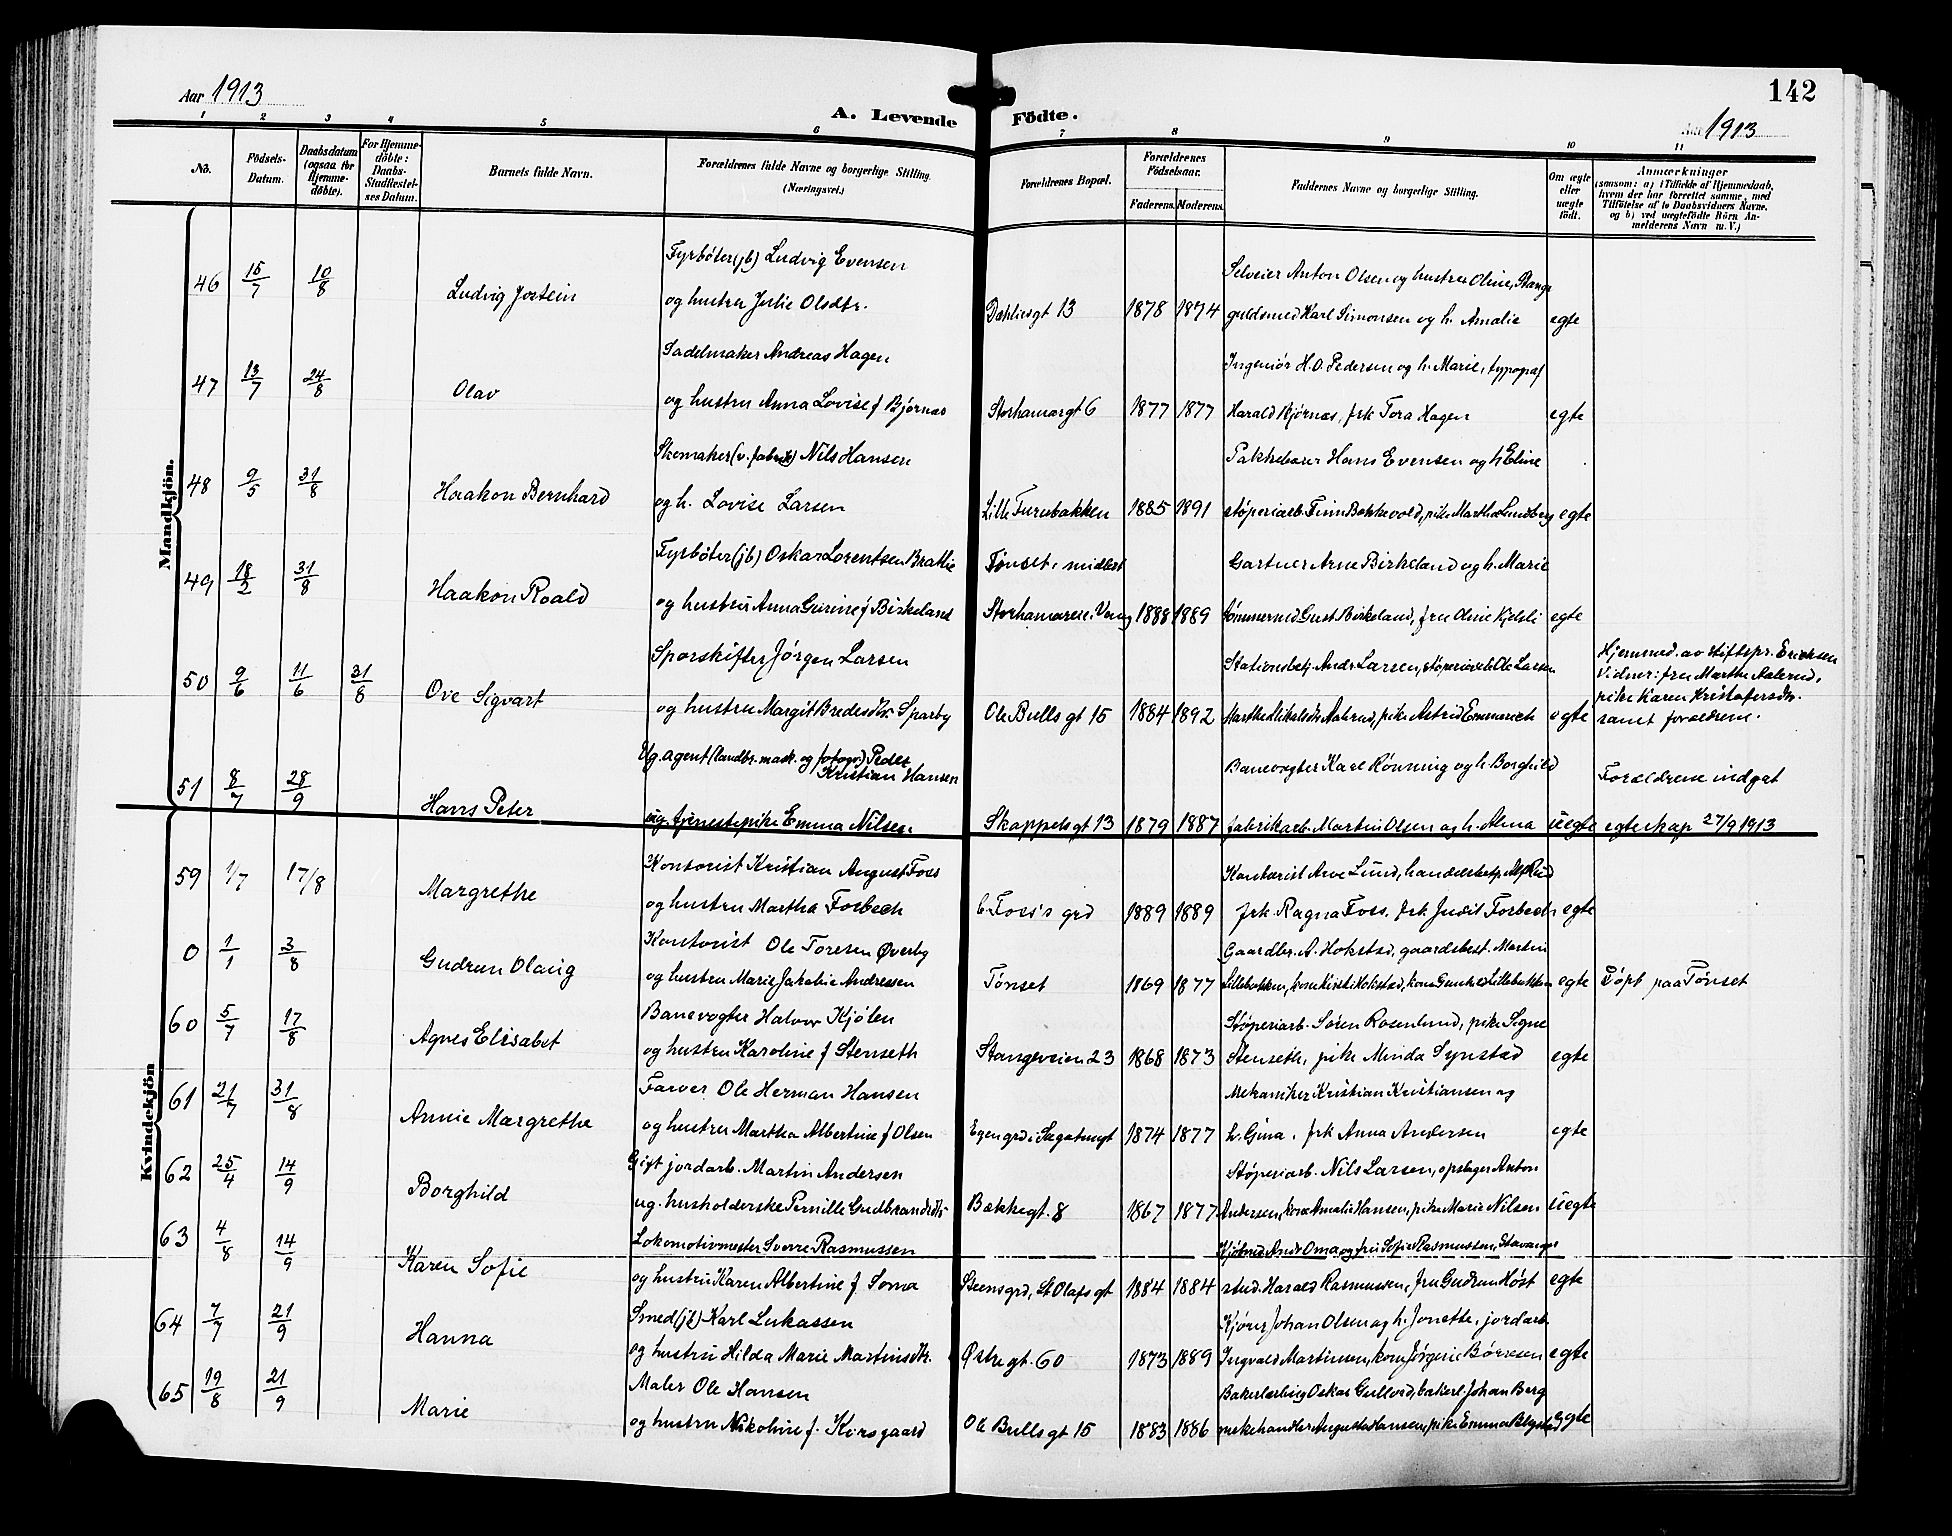 142
Aar 1913
A. Levende Födte.
Aar 1913
1 2 3 4 5 6 7 8 9 10 11
No.
Födsels-Datum.
Daabsdatum (ogsaa for Hjemme-döbte).
For Hjemme-döbte: Daabs-Stadfæstel-ses Datum.
Barnets fulde Navn.
Forældrenes fulde Navne og borgerlige Stilling. (Næringsvei.)
Forældrenes Bopæl.
Forældrenes Födselsaar.
Faderens. Moderens.
Faddernes Navne og borgerlige Stilling.
Om ægte eller uægte födt.
Anmærkninger
(saasom: a) i Tilfælde af Hjemmedaab,
hvem der har forrettet samme, med
Tilföielse af to Daabsvidners Navne,
og b) ved uægtefödte Börn An-
melderens Navn m. V.)
Mandkjön.
Fyrbøter (jb) Ludvig Evensen Selveier Anton Olsen og hustru Oline, Stange
46 15/7 10/8 Ludvig Jostein og hustru Julie Olsdtr. Dahliesgt 13 1878 1874 guldsmed Karl Simonsen og h. Amalie egte
Sadelmaker Andreas Hagen Ingeniör H.O. Pedersen og h. Marie, typograf
47 13/7 24/8 Olav og hustru Anna Lovise f Bjørnæs Storhamargt 6 1877 1877 Harald Bjørnæs, frk Tora Hagen egte
Skomaker (v. fabrik) Nils Hansen Pakkebærer Hans Evensen og h Eline
48 9/5 31/8 Haakon Bernhard og h. Lovise Larsen Lille Furubakken 1885 1891 støperiarb. Finn Bakkevold, pike Martha Lundberg egte
Fyrbøter (jb) Oskar Lorentsen Brathe Tønset, midlert Gartner Arne Birkeland og h. Marie
49 18/2 31/8 Haakon Roald og hustru Anna Gurine f Birkeland Storhamarvei. Vang 1888 1889 tömmermd Gust Birkeland, fru Oline Kjelsli egte
Sporskifter Jørgen Larsen Stationsbetj. Andr. Larsen, støperiarb Ole Larsen Hjemmed. av stiftspr. Ericksen
Vidner: fru Marthe Aalerud,
50 9/6 11/6 31/8 Ove Sigvart og hustru Margit Bredesdtr. Sparby Ole Bulls gt 15 1884 1892 Marthe Aalerud, pike Astrid Emmerich egte pike Karen Kristofersdtr.
samt forældrene.
Ug. agent (landbr. mask. og fotogr) Peder Kristian Hansen Banevogter Karl Rønning og h. Borghild Forældrene indgat
51 8/7 28/9 Hans Peter ug. tjenestepike Emma Nilsen Skappels gt 13 1879 1887 fabrikarb. Martin Olsen og h. Alma uegte egteskap 27/9 1913
Kvindekjön
Kontorist Kristian August Foss Kontorist Arve Lund, handelsbetj. Alf Rud
59 1/7 17/8 Margrethe og hustru Martha Forbech b. Foss's grd 1889 1889 frk Ragna Foss. frk Judit Forbech egte
Kontorist Ole Toresen Øverby Gaardbr. A. Hokstad, gaardsbest. Martin
0 1/1 3/8 Gudrun Olaug og hustru Marie Jakobine Andressen Tønset 1869 1877 Lillebakken, kone Kirsti Hokstad, kone Gunhild Lillebakken egte Døpt paa Tønset
Banevogter Halvor Kjølen Støperiarb. Sören Rosenlund, pike Signe
60 5/7 17/8 Agnes Elisabet og hustru Karoline f Stenseth Stangeveien 23 1868 1873 Stenseth, pike Minda Synstad egte
Farver Ole Herman Hansen Mekaniker Kristian Kristiansen og
61 21/7 31/8 Annie Margrethe og hustru Martha Albertine f Olsen Egen grd i Segatunet 1874 1877 h. Gina. frk Anna Andersen egte
Gift jordarb. Martin Andersen Støperiarb. Nils Larsen, opslager Anton
62 25/4 14/9 Borghild ug. husholderske Pernille Gudbrandsdtr. Bækkegt. 8 1867 1877 Andersen, kone Amalie Hansen, pike Marie Nilsen uegte
Lokomotivmester Sverre Rasmussen Kjøbmd Andr Oma og fru Sofie Rasmussen, Stavanger
63 4/8 14/9 Karen Sofie og hustru Karen Albertine f Soma Steensgrd, St Olafs gt 1884 1884 stud. Harald Rasmussen, fru Gudrun Høst egte
Smed (jb) Karl Lukassen Kjörer Johan Olsen og h. Jonette, jordarb
64 7/7 21/9 Hanna og hustru Hilda Marie Martinsdtr. Østregt. 60 1873 1889 Ingvald Martinsen, kone Jørgine Børresen egte
Maler Ole Hansen Bakerlærling Oskar Gullord, bakerl. Johan Berg
65 19/8 21/9 Marie og hustru Nikoline f. Korsgaard Ole Bulls gt 15 1883 1886 melkehandler Augusta Hansen, pike Emma Blystad egte